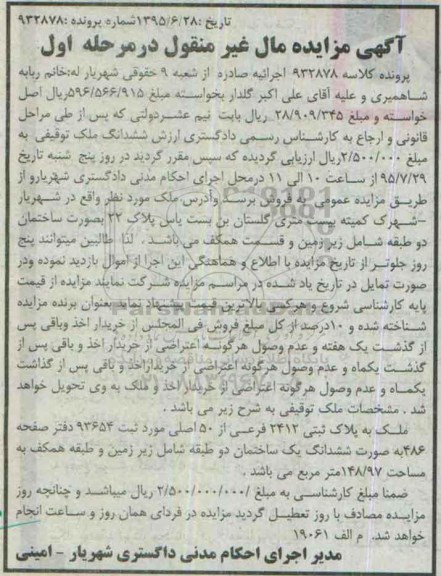 تاریخ :۱۳۹۵/۶/۲۸شماره پرونده :۹۳۲۸۷۸
آگهی مزایده مال غیر منقول درمرحله اول
پرونده کلاسه ۹۳۲۸۷۸ اجرائیه صادره از شعبه ۹ حقوقی شهریار له:خانم ربابه
شاهمیری و علیه آقای علی اکبر گلدار بخواسته مبلغ ۵۹۶/۵۶۶/۹۱۵ریال اصل
خواسته و مبلغ ۲۸/۹۰۹/۳۴۵ ریال بابت نیم عشردولتی که پس از طی مراحل
قانونی و ارجاع به کارشناس رسمی دادگستری ارزش ششدانگ ملک توقیفی به
مبلغ ۲/۵۰۰/۰۰۰ریال ارزیابی گردیده که سپس مقرر گردید در روز پنج شنبه تاریخ
۹۵/۷/۲۹ از ساعت ۱۰ الی ۱۱ درمحل اجرای احکام مدنی دادگستری شهریارو از
طریق مزایده عمومی به فروش برسد وآدرس ملک مورد نظر واقع در شهریار
-شهرک کمیته بیست متری گلستان بن بست یاس پلاک ۲۲ بصورت ساختمان
دو طبقه شامل زیر زمین و قسمت همکف می باشد . لذا طالبین میتوانند پنج
روز جلوتر از تاریخ مزایده با اطلاع و هماهنگی این اجرا از اموال بازدید نموده ودر
صورت تمایل در تاریخ یاد شده در مراسم مزایده شرکت نمایند مزایده از قیمت
پایه کارشناسی شروع و هرکس بالاترین قیمت پیشنهاد نماید بعنوان برنده مزایده
شناخته شده و ۱۰درصد از کل مبلغ فروش فی المجلس از خریدار اخذ وباقی پس
از گذشت یک هفته و عدم وصول هرگونه اعتراضی از خریدار اخذ و باقی پس از
گذشت یکماه و عدم وصول هرگونه اعتراضی از خریداراخذ و باقی پس از گذشت
یکماه و عدم وصول هرگونه اعتراضی از خریدار اخذ و ملک به وی تحویل خواهد
شد . مشخصات ملک توقیفی به شرح زیر می باشد .
ملک به پلاک ثبتی ۲۴۱۲ فرعی از ۵۰ اصلی مورد ثبت ۹۳۶۵۴ دفتر صفحه
۴۸۶به صورت ششدانگ یک ساختمان دو طبقه شامل زیر زمین و طبقه همکف به
مساحت ۱۴۸/۹۷متر مربع می باشد .
ضمنا مبلغ کارشناسی به مبلغ /۲/۵۰۰/۰۰۰/۰۰۰ ریال میباشد و چنانچه روز
مزایده مصادف با روز تعطیل گردید مزایده در فردای همان روز و ساعت انجام
خواهد شد. م الف ۱۹۰۶۱
مدیر اجرای احکام مدنی داگستری شهریار - امینی